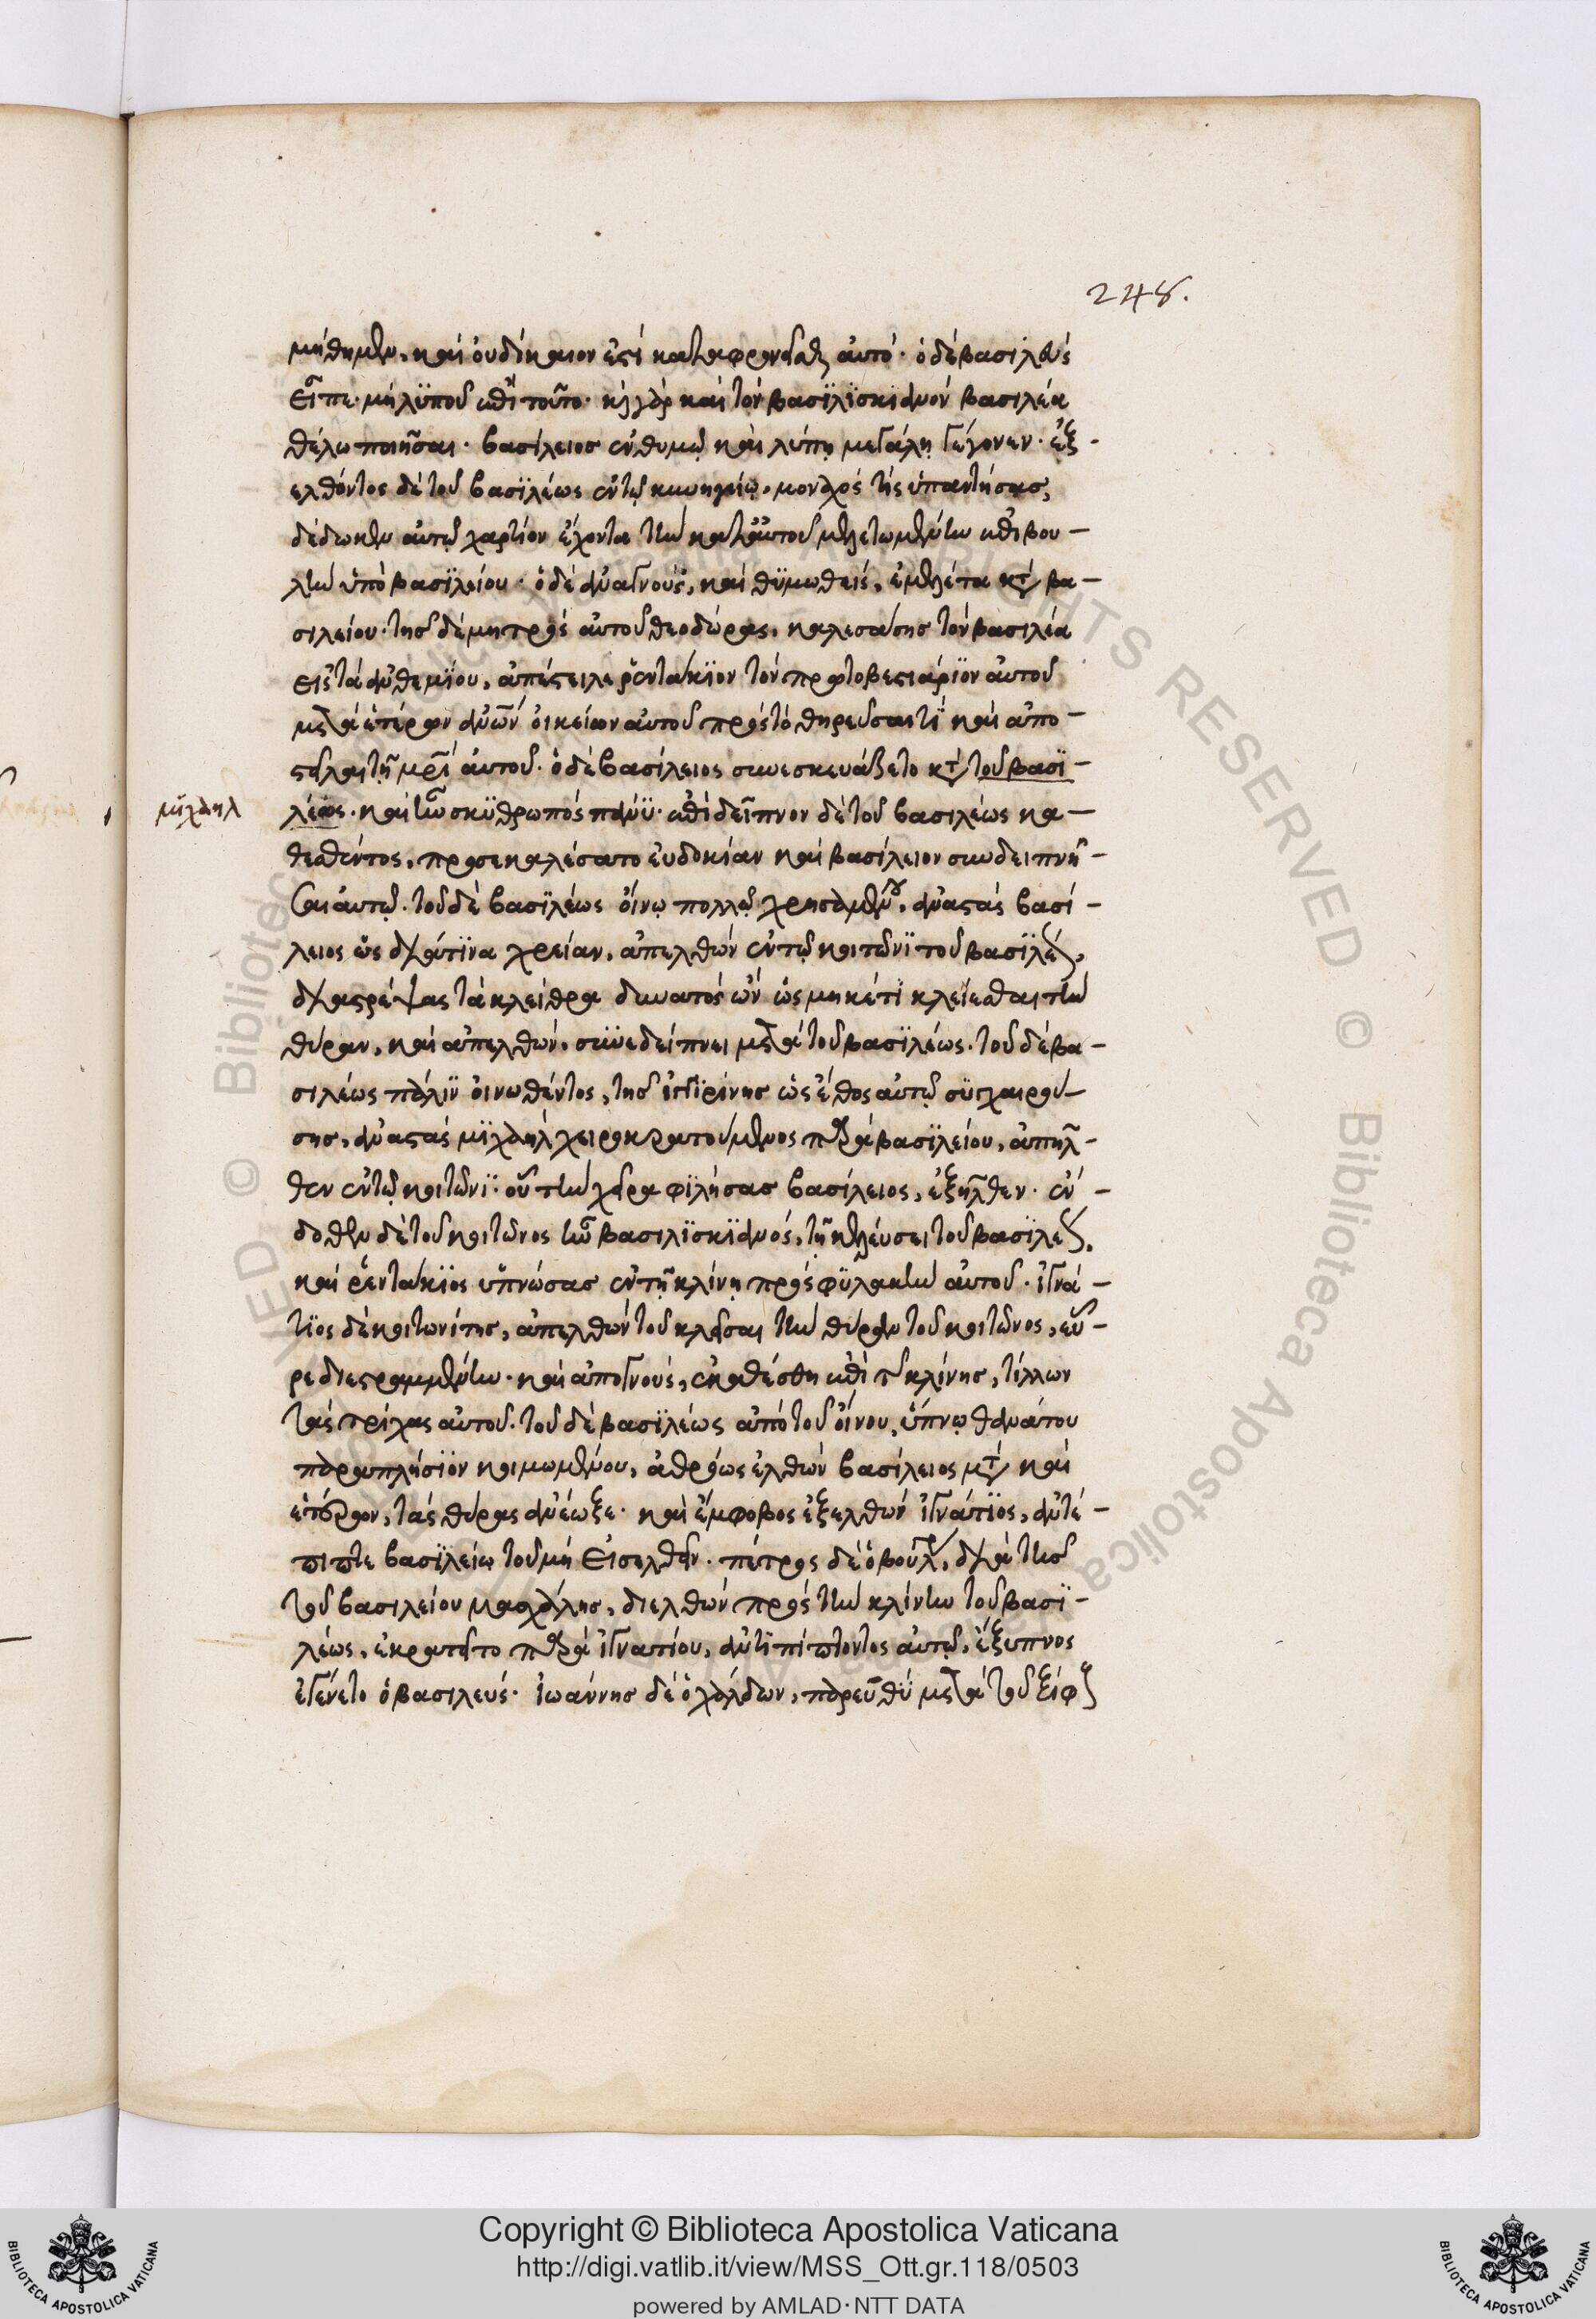 248.
μήθημεν, καὶ οὐ δίκαιον ἐστὶ καταφρονεῖσθαι αὐτό· ὁ δὲ βασιλεὺς
εἶπε· μὴ λϋποῦ ἐπὶ τοῦτο· καὶ γὰρ καὶ τὸν βασϊλϊσκϊανὸν βασιλέα
θέλω ποιῆσαι· βασίλειος ἐν θυμῷ καὶ λύπῃ μεγάλῃ γέγονεν· ἐξ-
ελθόντος δὲ τοῦ βασϊλέως ἐν τῷ κυνηγίῳ, μοναχός τίς ὑπαντήσας,
δέδωκεν αὐτῷ χαρτίον ἔχοντα τὴν κατ' αὐτοῦ μελετωμένην ἐπιβου-
λὴν ὑπὸ βασϊλείου· ὁ δὲ ἀναγνοὺς, καὶ θϋμωθεὶς, ἐμελέτα κατὰ βα-
σιλείου· τῆς δὲ μητρὸς αὐτοῦ θεοδώρας, καλεσάσης τὸν βασιλέα
εἰς τὰ ἀνθεμϊου, ἀπέστειλε ῥεντάκϊον τὸν πρωτοβεστιάρϊον αὐτοῦ
μετὰ ἑτέρων ἀνῶν οἰκείων αὐτοῦ πρὸς τὸ θηρεῦσαι τϊ καὶ ἀπο-
στεῖλαι τῇ μρὶ αὐτοῦ· ὁ δὲ βασίλειος συνεσκευάζετο κατὰ τοῦ βασϊ-
μϊχαηλ
λέως· καὶ ἦν σκϋθρωπὸς πάνϋ· ἐπὶ δεῖπνον δὲ τοῦ βασιλέως κα-
θεσθέντος, προσεκαλέσατο εὐδοκίαν καὶ βασίλειον συνδειπνῆ-
σαι αὐτῷ· τοῦ δὲ βασϊλέως οἴνῳ πολλῷ χρησαμένου, ἀναστὰς βασί-
λειος ὡς διὰ τϊνα χρείαν, ἀπελθὼν ἐν τῷ κοιτῶνϊ τοῦ βασϊλέως,
διαστρέψας τὰ κλείθρα δυνατὸς ὢν ὡς μηκέτϊ κλείεσθαι τὴν
θύραν, καὶ ἀπελθὼν, συνεδείπνει μετὰ τοῦ βασϊλέως· τοῦ δὲ βα-
σιλέως πάλϊν οἰνωθέντος, τῆς ἰγγϊρίνης ὡς ἔθος αὐτῷ σϋγχαιρού-
σης, ἀναστὰς μϊχαὴλ χειροκρατούμενος παρὰ βασϊλείου, ἀπῆλ-
θεν ἐν τῷ κοιτῶνϊ· οὗ τὴν χεῖρα φϊλήσας βασίλειος, ἐξῆλθεν· ἔν-
δοθεν δὲ τοῦ κοιτῶνος ἦν βασιλϊσκϊανὸς, τῇ κελεύσει τοῦ βασϊλέως,
καὶ ῥεντάκϊος ὑπνώσας ἐν τῇ κλίνῃ πρὸς φϋλακὴν αὐτοῦ· ἰγνά-
τϊος δὲ κοιτωνίτης, ἀπελθὼν τοῦ κλεῖσαι τὴν θύραν τοῦ κοιτῶνος, εὗ-
ρε διεστραμμένην· καὶ ἀπογνοὺς, ἐκαθέσθη ἐπὶ τῆς κλίνης, τίλλων
τὰς τρίχας αὐτοῦ· τοῦ δὲ βασϊλέως ἀπὸ τοῦ οἴνου, ὕπνῳ θανάτου
παραπλήσϊον κοιμωμένου, ἀθρόως ἐλθὼν βασίλειος μετὰ καὶ
ἑτέρων, τὰς θύρας ἀνέωξε· καὶ ἔμφοβος ἐξελθὼν ἰγνάτϊος, ἀντέ-
πιπτε βασϊλείῳ τοῦ μὴ εἰσελθεῖν· πέτρος δὲ ὁ βούλγαρ, διὰ τῆς
τοῦ βασιλείου μασχάλης, διελθὼν πρὸς τὴν κλίνην τοῦ βασϊ-
λέως, ἐκρατεῖτο παρὰ ἰγνατίου, ἀντϊπίπτοντος αὐτῷ, ἔξυπνος
ἐγένετο ὁ βασιλεύς· ἰωάννης δὲ ὁ χάλδων, παρευθὺ μετὰ τοῦ ξίφους
Copyright © Biblioteca Apostolica Vaticana
http://digi.vatlib.it/view/MSS_Ott.gr.118/0503
powered by AMLAD·NTT DATA